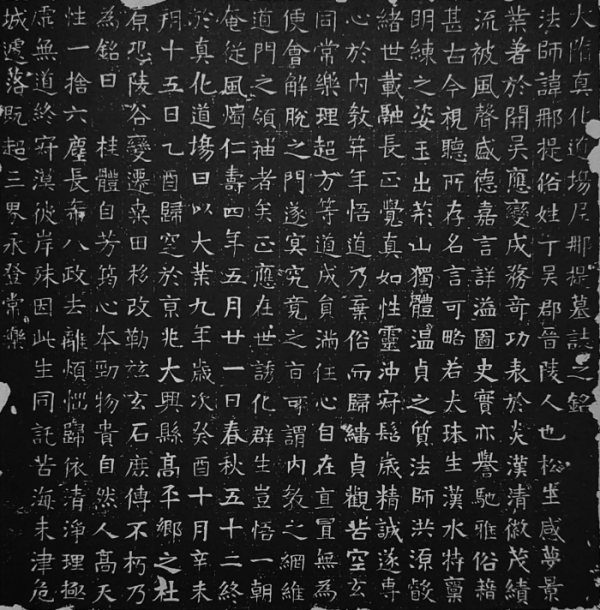 大隋真化道場尼那提墓誌之銘
法師諱那提俗姓丁吳郡晉陵人也松生感夢景
業著於開吳應變成務奇功表於炎漢清徽茂績
流被風聲盛德嘉言詳溢圖史實亦譽馳雅俗藉
甚古今視聽所存名言可略若夫珠生漢水特稟
明練之姿玉出荊山獨體溫貞之質法師洪源叡
緒世載融長正覺真如性靈沖寂髫歲精誠遂專
心於內教笄年悟道乃棄俗而歸緇貞觀苦空玄
同常樂理超方等道成員滿任心自在直置無為
便會解脫之門遂冥究竟之旨可謂內教之綱維
道門之領袖者矣正應在世誘化群生豈悟一朝
奄從風燭仁壽四年五月廿一日春秋五十二終
於真化道場曰以大業九年歲次癸酉十月辛未
朔十五日乙酉歸窆於京兆大興縣高平鄉之杜
原恐陵谷變遷桑田移改勒茲玄石庶傳不朽乃
為銘曰 桂體自芳筠心本勁物貴自然人高天
性一捨六塵長希八政去離煩惱歸依清淨理極
虛無道終寂漠彼岸殊因此生同託苦海未津危
城遽落既超三界永登常樂